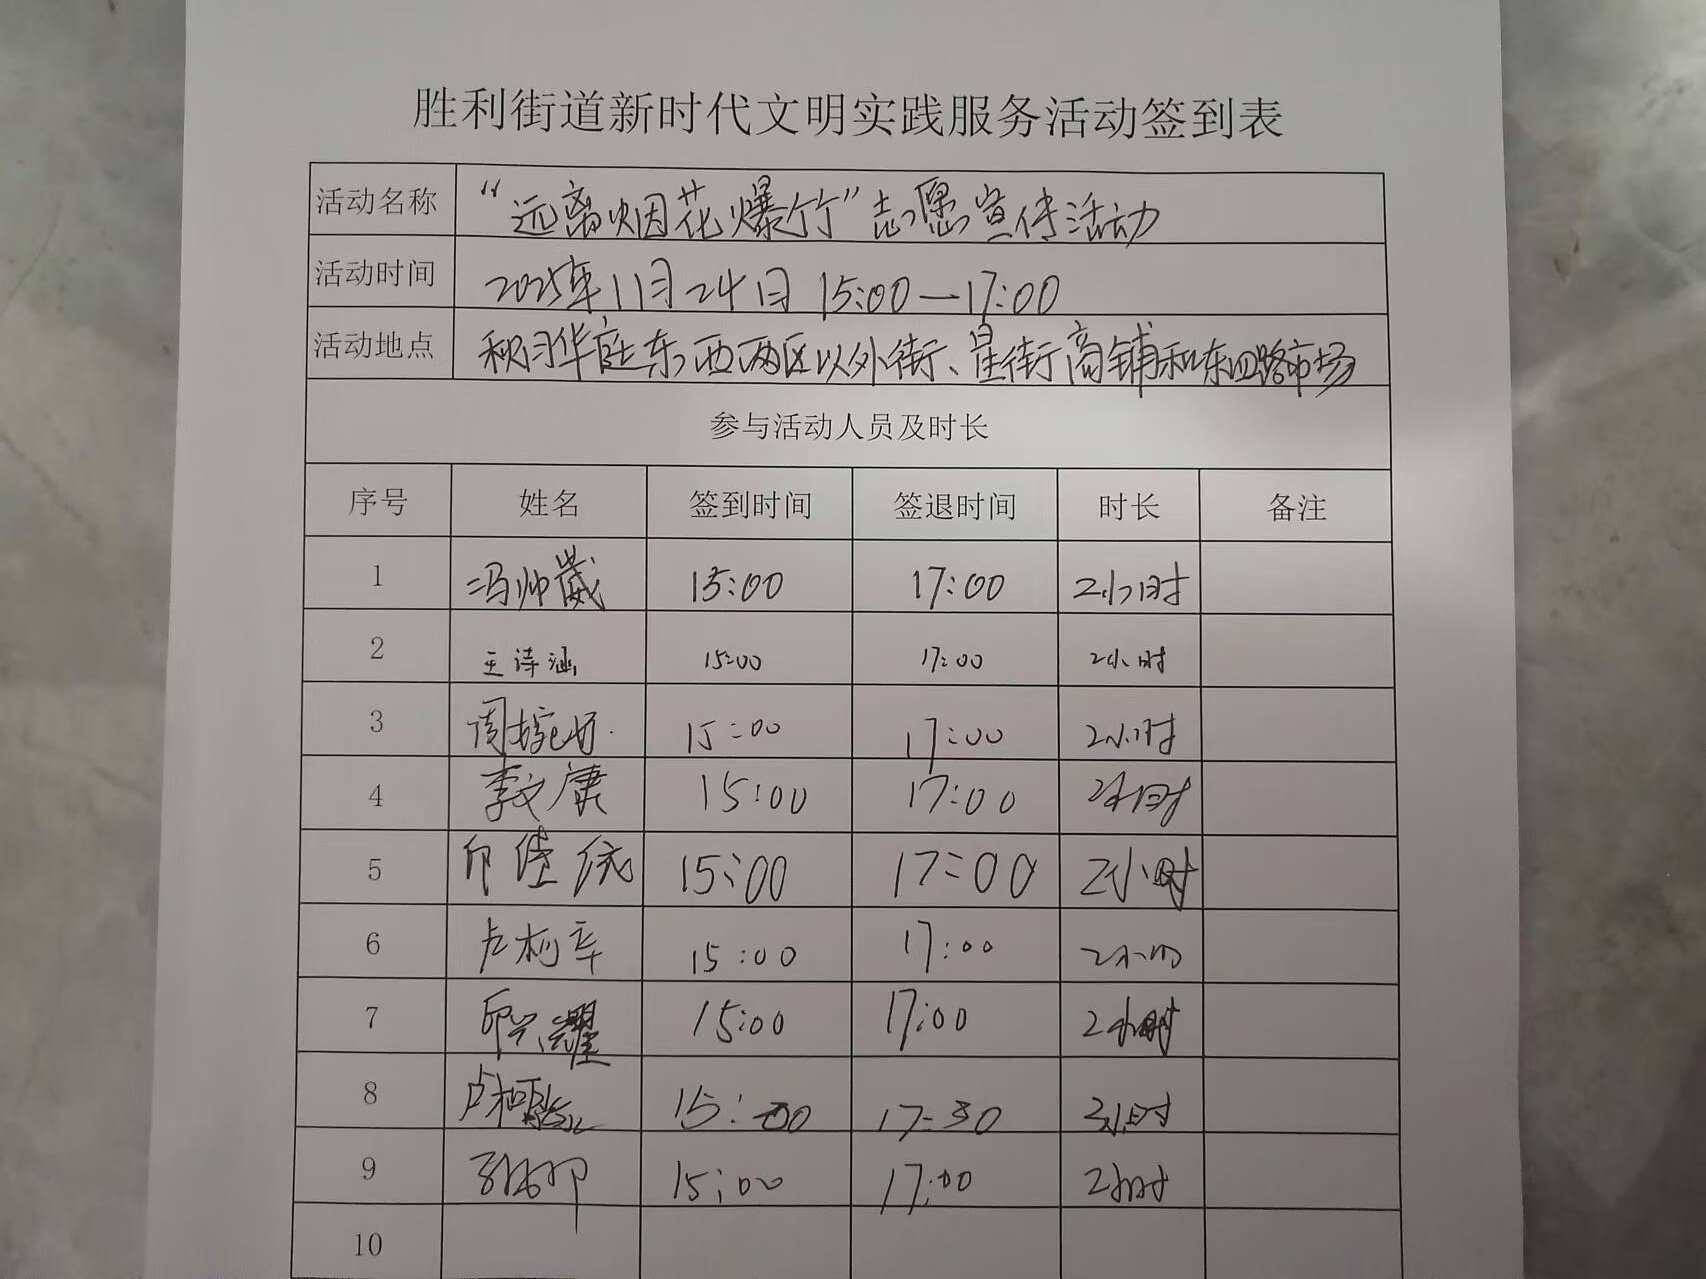 胜利街道新时代文明实践服务活动签到表
活动名称 “远离烟花爆竹”志愿宣传活动
活动时间 2025年11月24日 15:00—17:00
活动地点 秋月华庭东西两区以外街、星街商铺和东四路市场
参与活动人员及时长
序号 姓名 签到时间 签退时间 时长 备注
1 冯帅崴 15:00 17:00 2小时
2 王诗涵 15:00 17:00 2小时
3 周婉 15:00 17:00 2小时
4 李文康 15:00 17:00 2小时
5 15:00 17:00 2小时
6 卢柯年 15:00 17:00 2小时
7 15:00 17:00 2小时
8 卢 15:00 17:30 小时
9 15:00 17:00 2小时
10